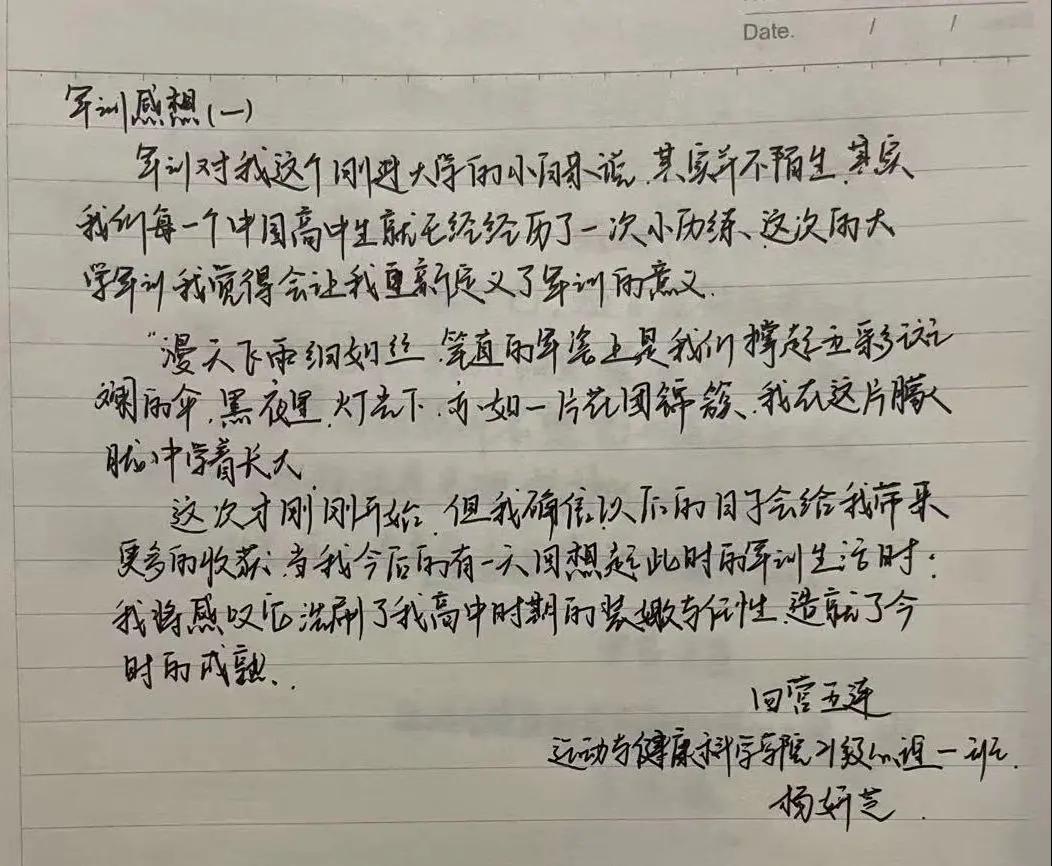 Date. / /
军训感想(一)
军训对我这个刚进大学的小白来说,其实并不陌生,其实
我们每一个中国高中生就已经经历了一次小历练、这次的大
学军训我觉得会让我重新定义了军训的意义.
"漫天飞雨细如丝,笔直的军姿上是我们撑起五彩斑
斓的伞,黑夜里,灯光下,亦如一片花团锦簇、我在这片朦
胧中学着长大
这次才刚刚开始,但我确信以后的日子会给我带来
更多的收获;当我今后的有一天回想起此时的军训生活时:
我将感叹它洗刷了我高中时期的 嫩与任性,造就了今
时的成熟.
四营五连
运动与健康科学学院21级心理一班.
杨妍芝